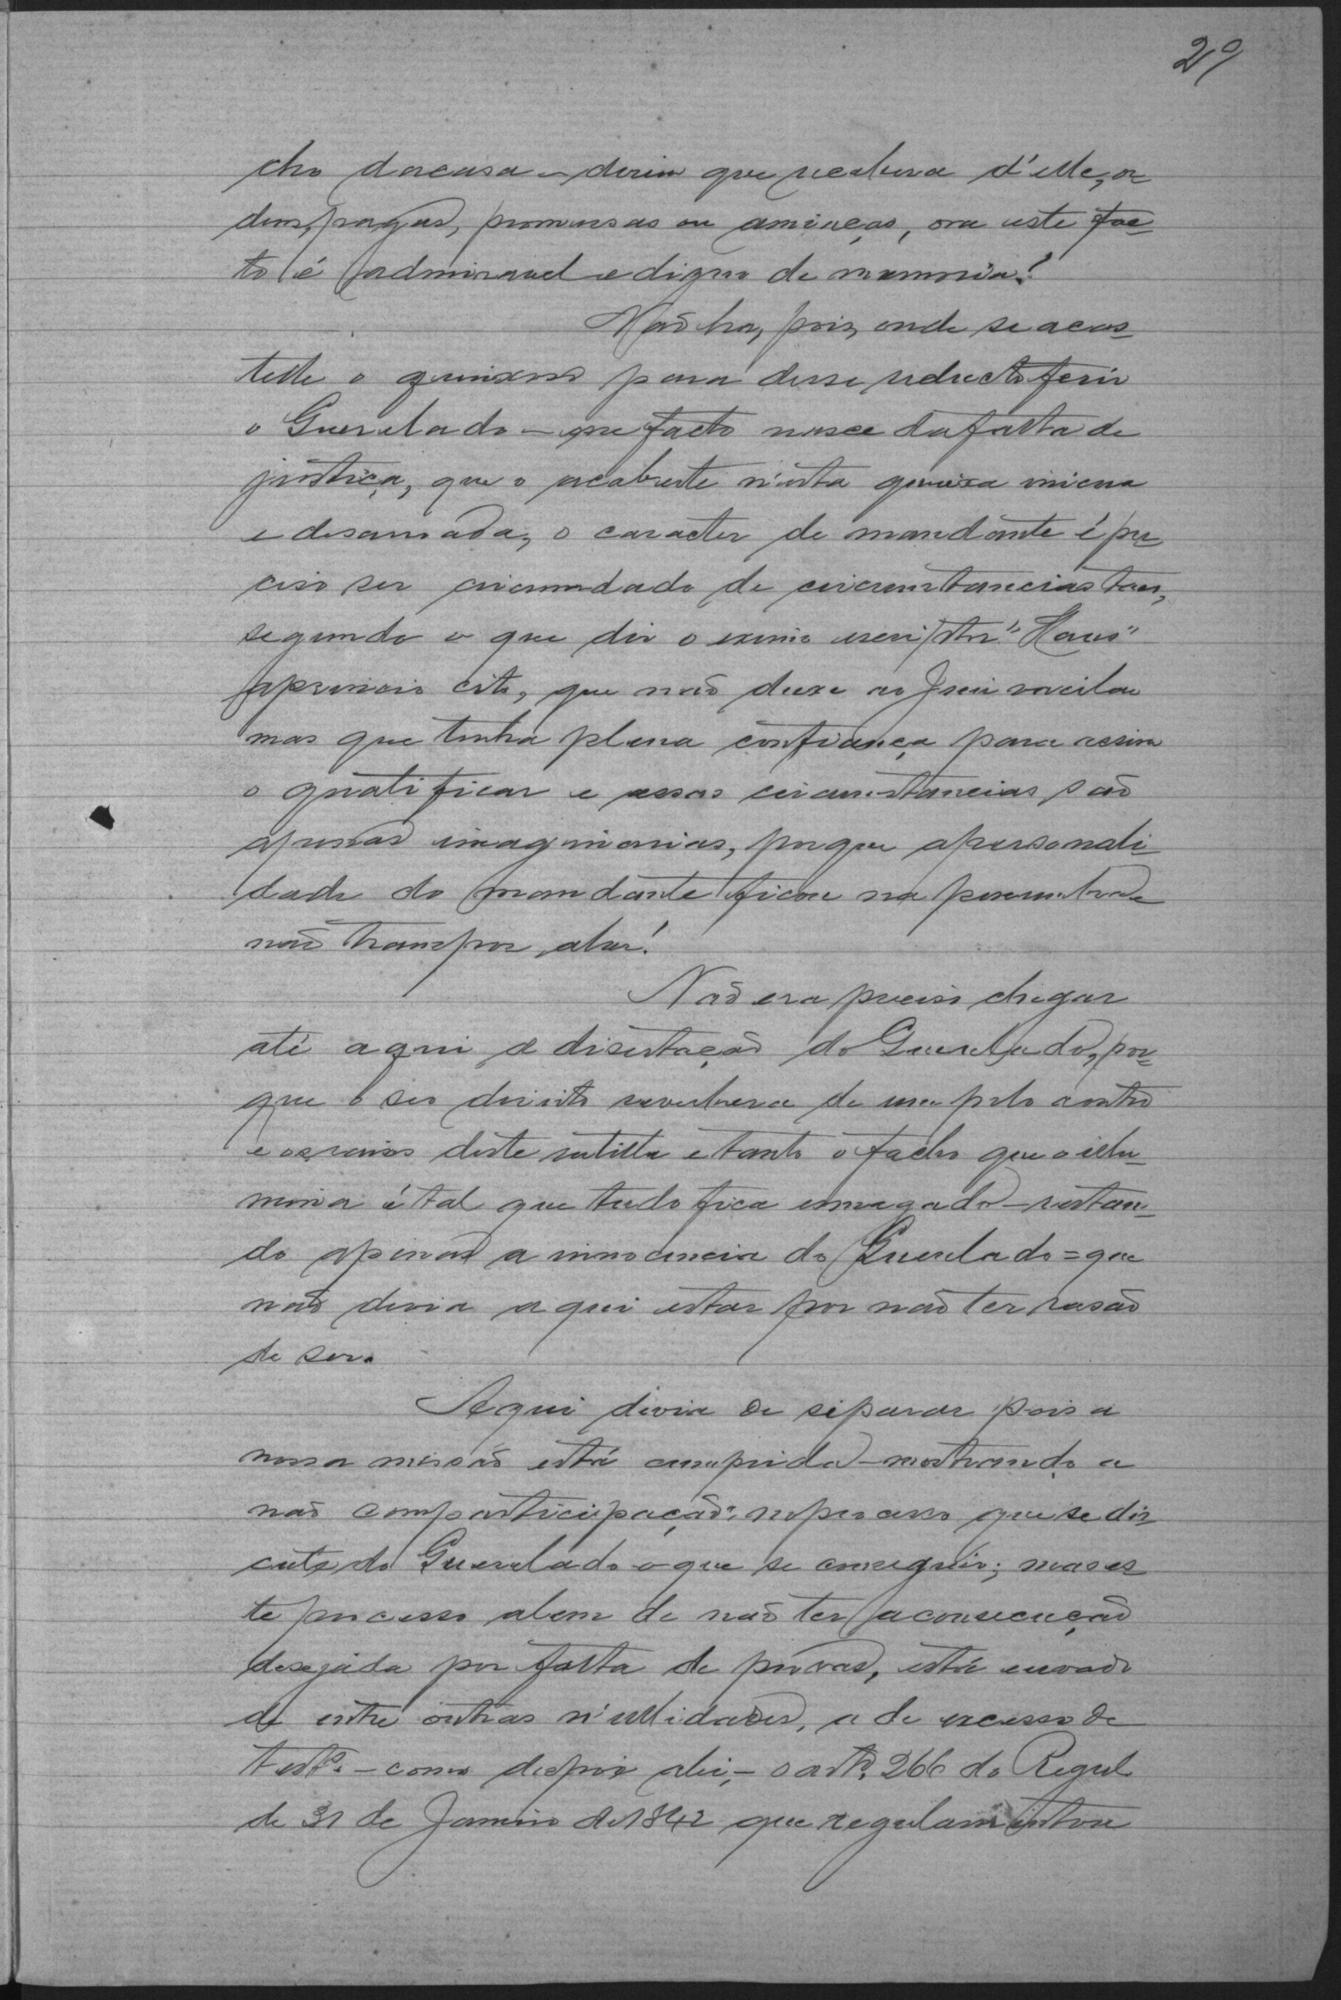 29
cho da casa – dirim que recebera d'elle, or
dens, pagas, promessas ou amiaças, ora este fac-
to é admiravel e digno de memoria!
Não ha, pois, onde se acas-
telle o queixoso para desse reducto ferir
o Querelado – que facto nasce da falta de
justiça, que o acabrunte n'esta queixa inicua
e desarrasada, o caracter de mandante é pre
ciso ser circumdado de circumstancias taes,
segundo o que diz o eximio escriptor "Haus"
cito, que não deixe ao Juiz vacilar
mas que tenha plena confiança para assim
o qualificar e essas circunstancias são
apenas imaginarias, porque a personali-
dade do mandante ficou na penumbra e
não transpoz alem!
Não era preciso chegar
até aqui a disertação do Querelado, por-
que o seu direito reverbera de um polo a outro
e os raios deste scintilla e tanto o facho que o illu-
mina é tal que tudo fica esmagado – restan-
do apenas a innocencia do Querelado = que
não devia aqui estar por não ter rasão
de ser.
Aqui devia de separar pois a
nossa missão está cumprida – mostrando a
não comparticipação: no processo que se dis
cute do Querelado o que se conseguio; mas es
te processo alem de não ter a consecução
desejada por falta de provas, está eivado
de entre outras nullidades, a de excesso de
test.as – como dispõe alei, – o art.º 266 do Regul
de 31 de Janeiro de 1842 que regulamentou